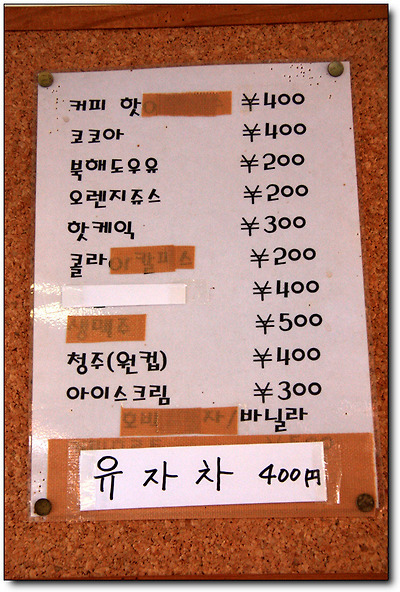 커피 핫 ¥400
코코아 ¥400
북해도우유 ¥200
오렌지쥬스 ¥200
핫케익 ¥300
콜라 or 칼피스 ¥200
¥400
생맥주 ¥500
청주(원컵) ¥400
아이스크림 ¥300
호박 자/바닐라
유자차 400円